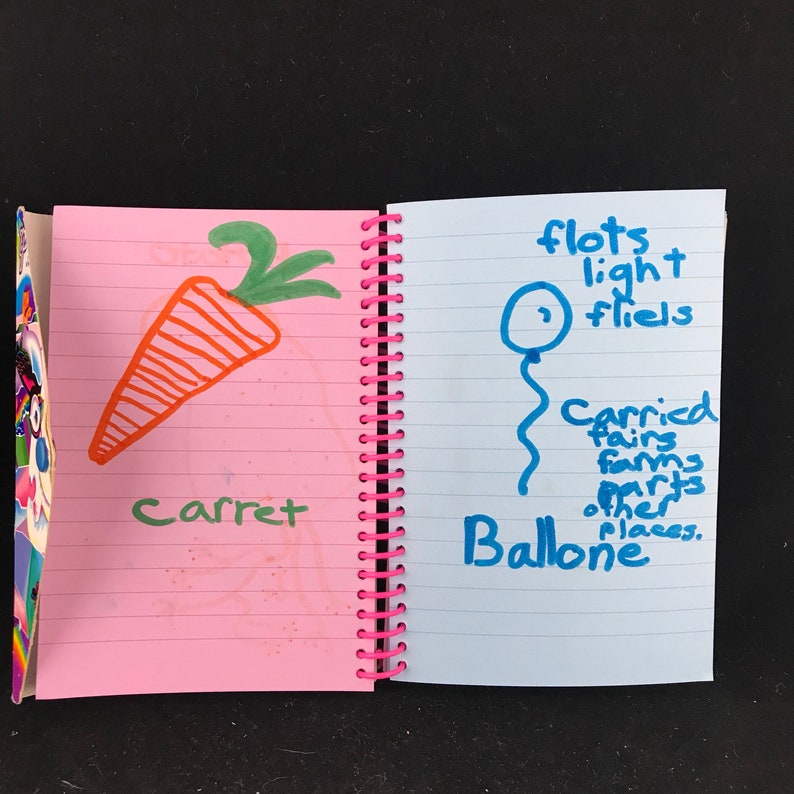 carret
flots
light
fliels
Carried
fairs
farms
parts
other
places.
Ballone